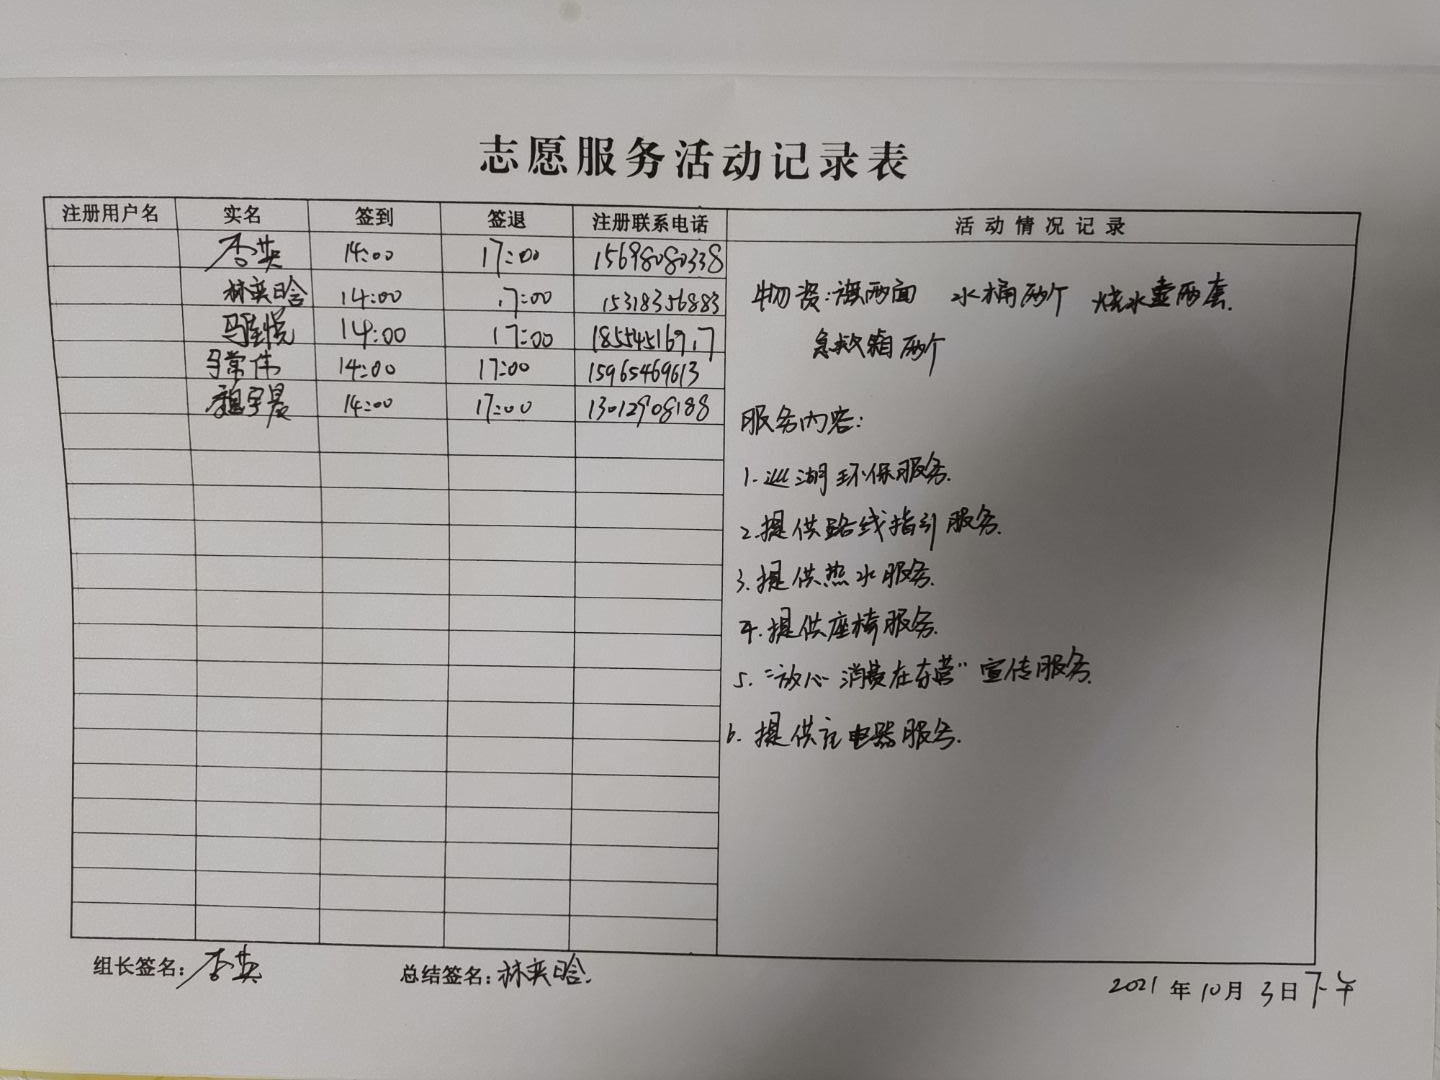 志愿服务活动记录表
注册用户名 实名 签到 签退 注册联系电话 活动情况记录
李英 14:00 17:00 15698080338
林奕晗 14:00 17:00 15318356883
14:00 17:00
马常伟 14:00 17:00 15965469613
魏宇晨 14:00 17:00 13012908188
物资:旗两面 水桶两个 烧水壶两套.
急救箱两个
服务内容:
1.巡湖环保服务.
2.提供路线指引服务.
3.提供热水服务.
4.提供座椅服务.
5.“放心消费在东营”宣传服务.
6.提供充电器服务.
组长签名:李英 总结签名:林奕晗.
2021年10月3日下午